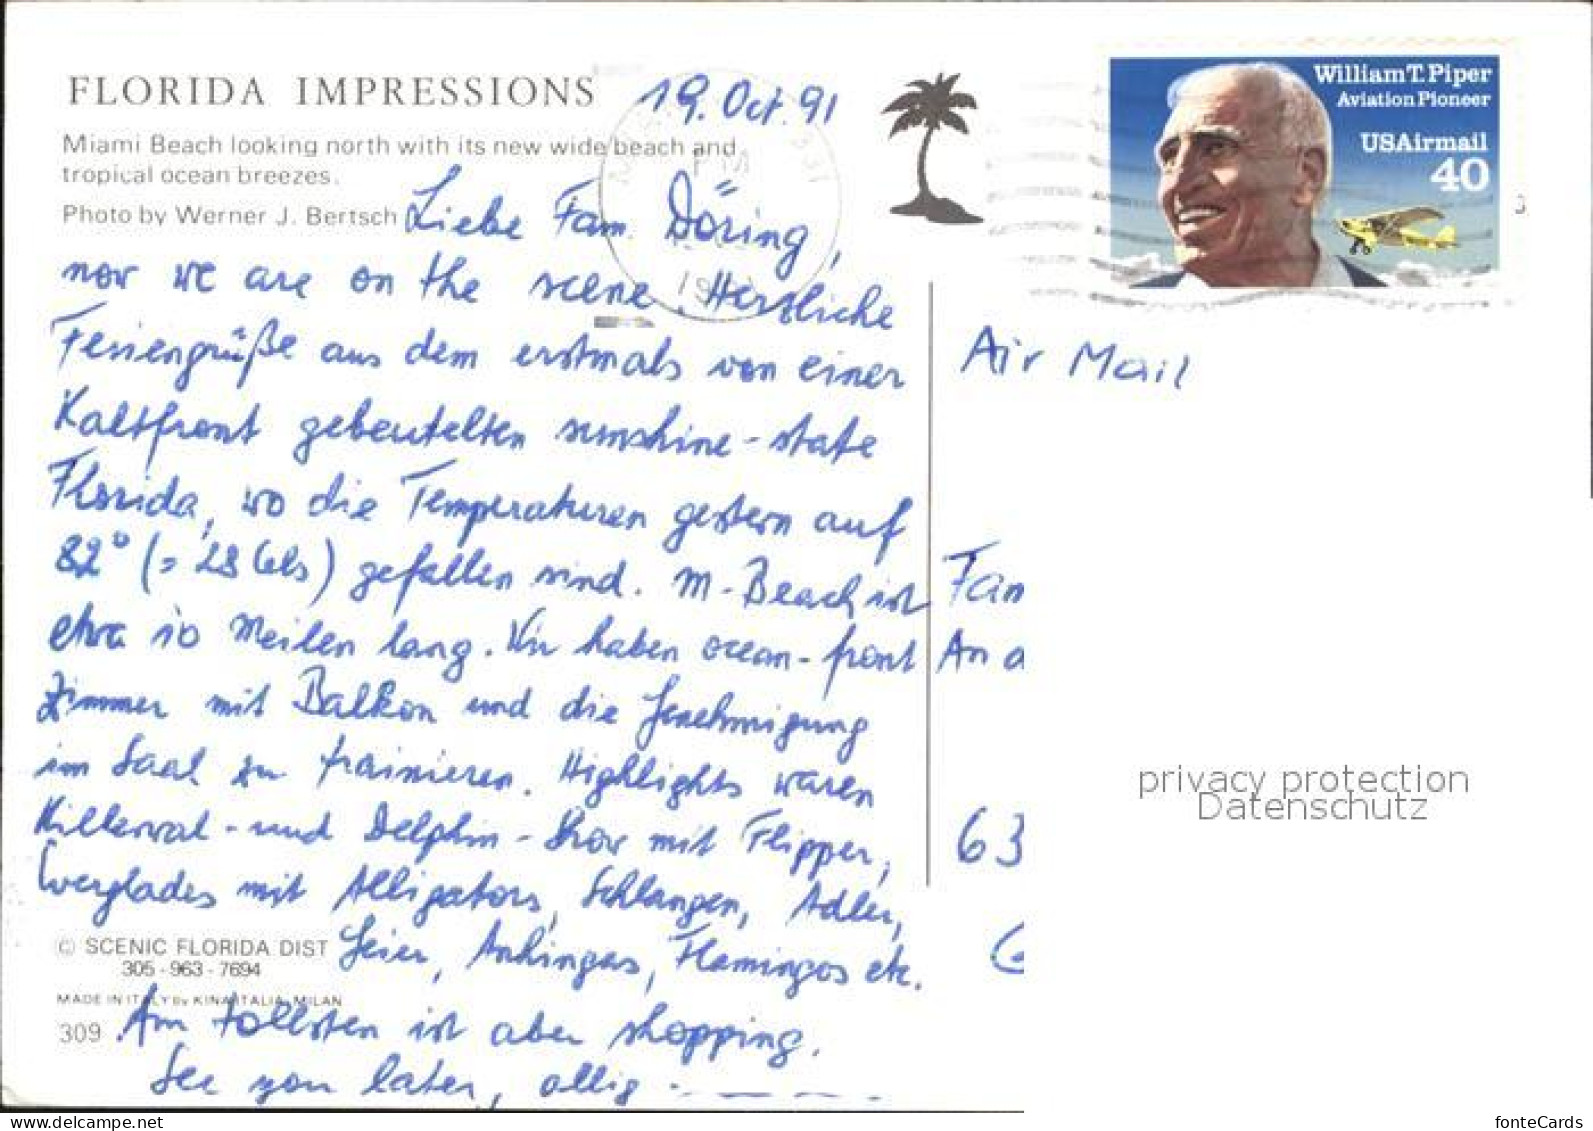 FLORIDA IMPRESSIONS
19. Oct. 91
Miami Beach looking north with its new wide beach and
tropical ocean breezes.
Photo by Werner J. Bertsch
Liebe Fam. Döring,
now we are on the scene. Herzliche
Feriengrüße aus dem erstmals von einer
Kaltfront gebeutelten sunshine-state
Florida, wo die Temperaturen gestern auf
82° (= 28 Cels) gefallen sind. M-Beach ist
etwa 10 Meilen lang. Wir haben ocean-front
Zimmer mit Balkon und die Genehmigung
im Saal zu trainieren. Highlights waren
Killerwal- und Delphin-Show mit Flipper,
Everglades mit Alligators, Schlangen, Adler,
Geier, Anhingas, Flamingos etc.
Am tollsten ist aber shopping.
See you later, allig.-----
© SCENIC FLORIDA DIST
305-963-7694
MADE IN ITALY by KINA ITALIA, MILAN
309
William T. Piper
Aviation Pioneer
USAirmail
40
PM
Air Mail
Fam
An d
63
privacy protection
Datenschutz
www.delcampe.net
fonteCards